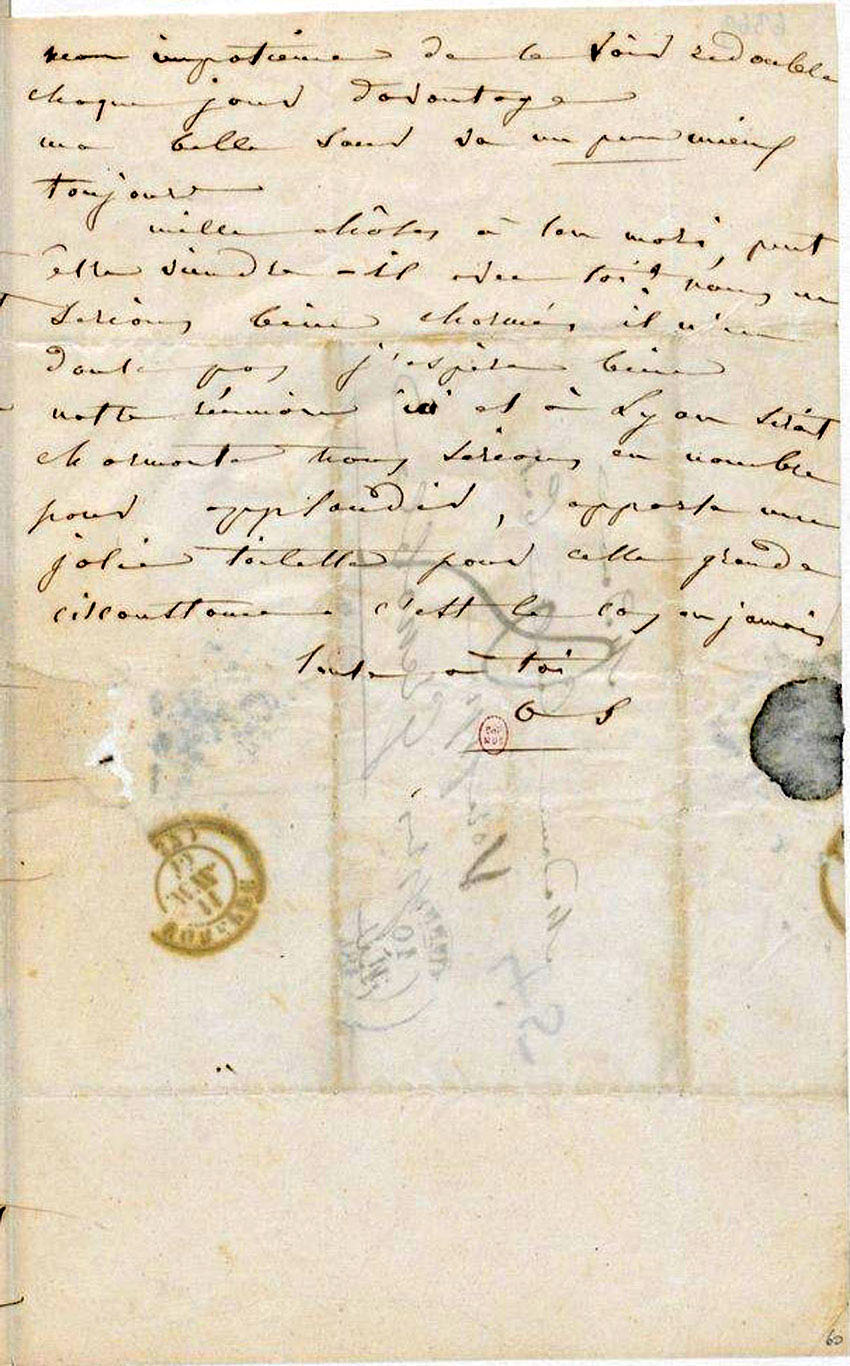 mon impatience de te voir redouble
chaque jour davantage
ma belle soeur va un peu mieux
toujours
mille chôses à ton mari, peut
être viendra-t-il avec toi? nous en
serions bien charmés, il n'en
doute pas j'espère bien
notre réunion ici et à Lyon serait
charmante nous serions en nombre
pour applaudir, apporte une
jolie toilette pour cette grande
circonstance c'est le cas ou jamais
toute à toi
O S
60